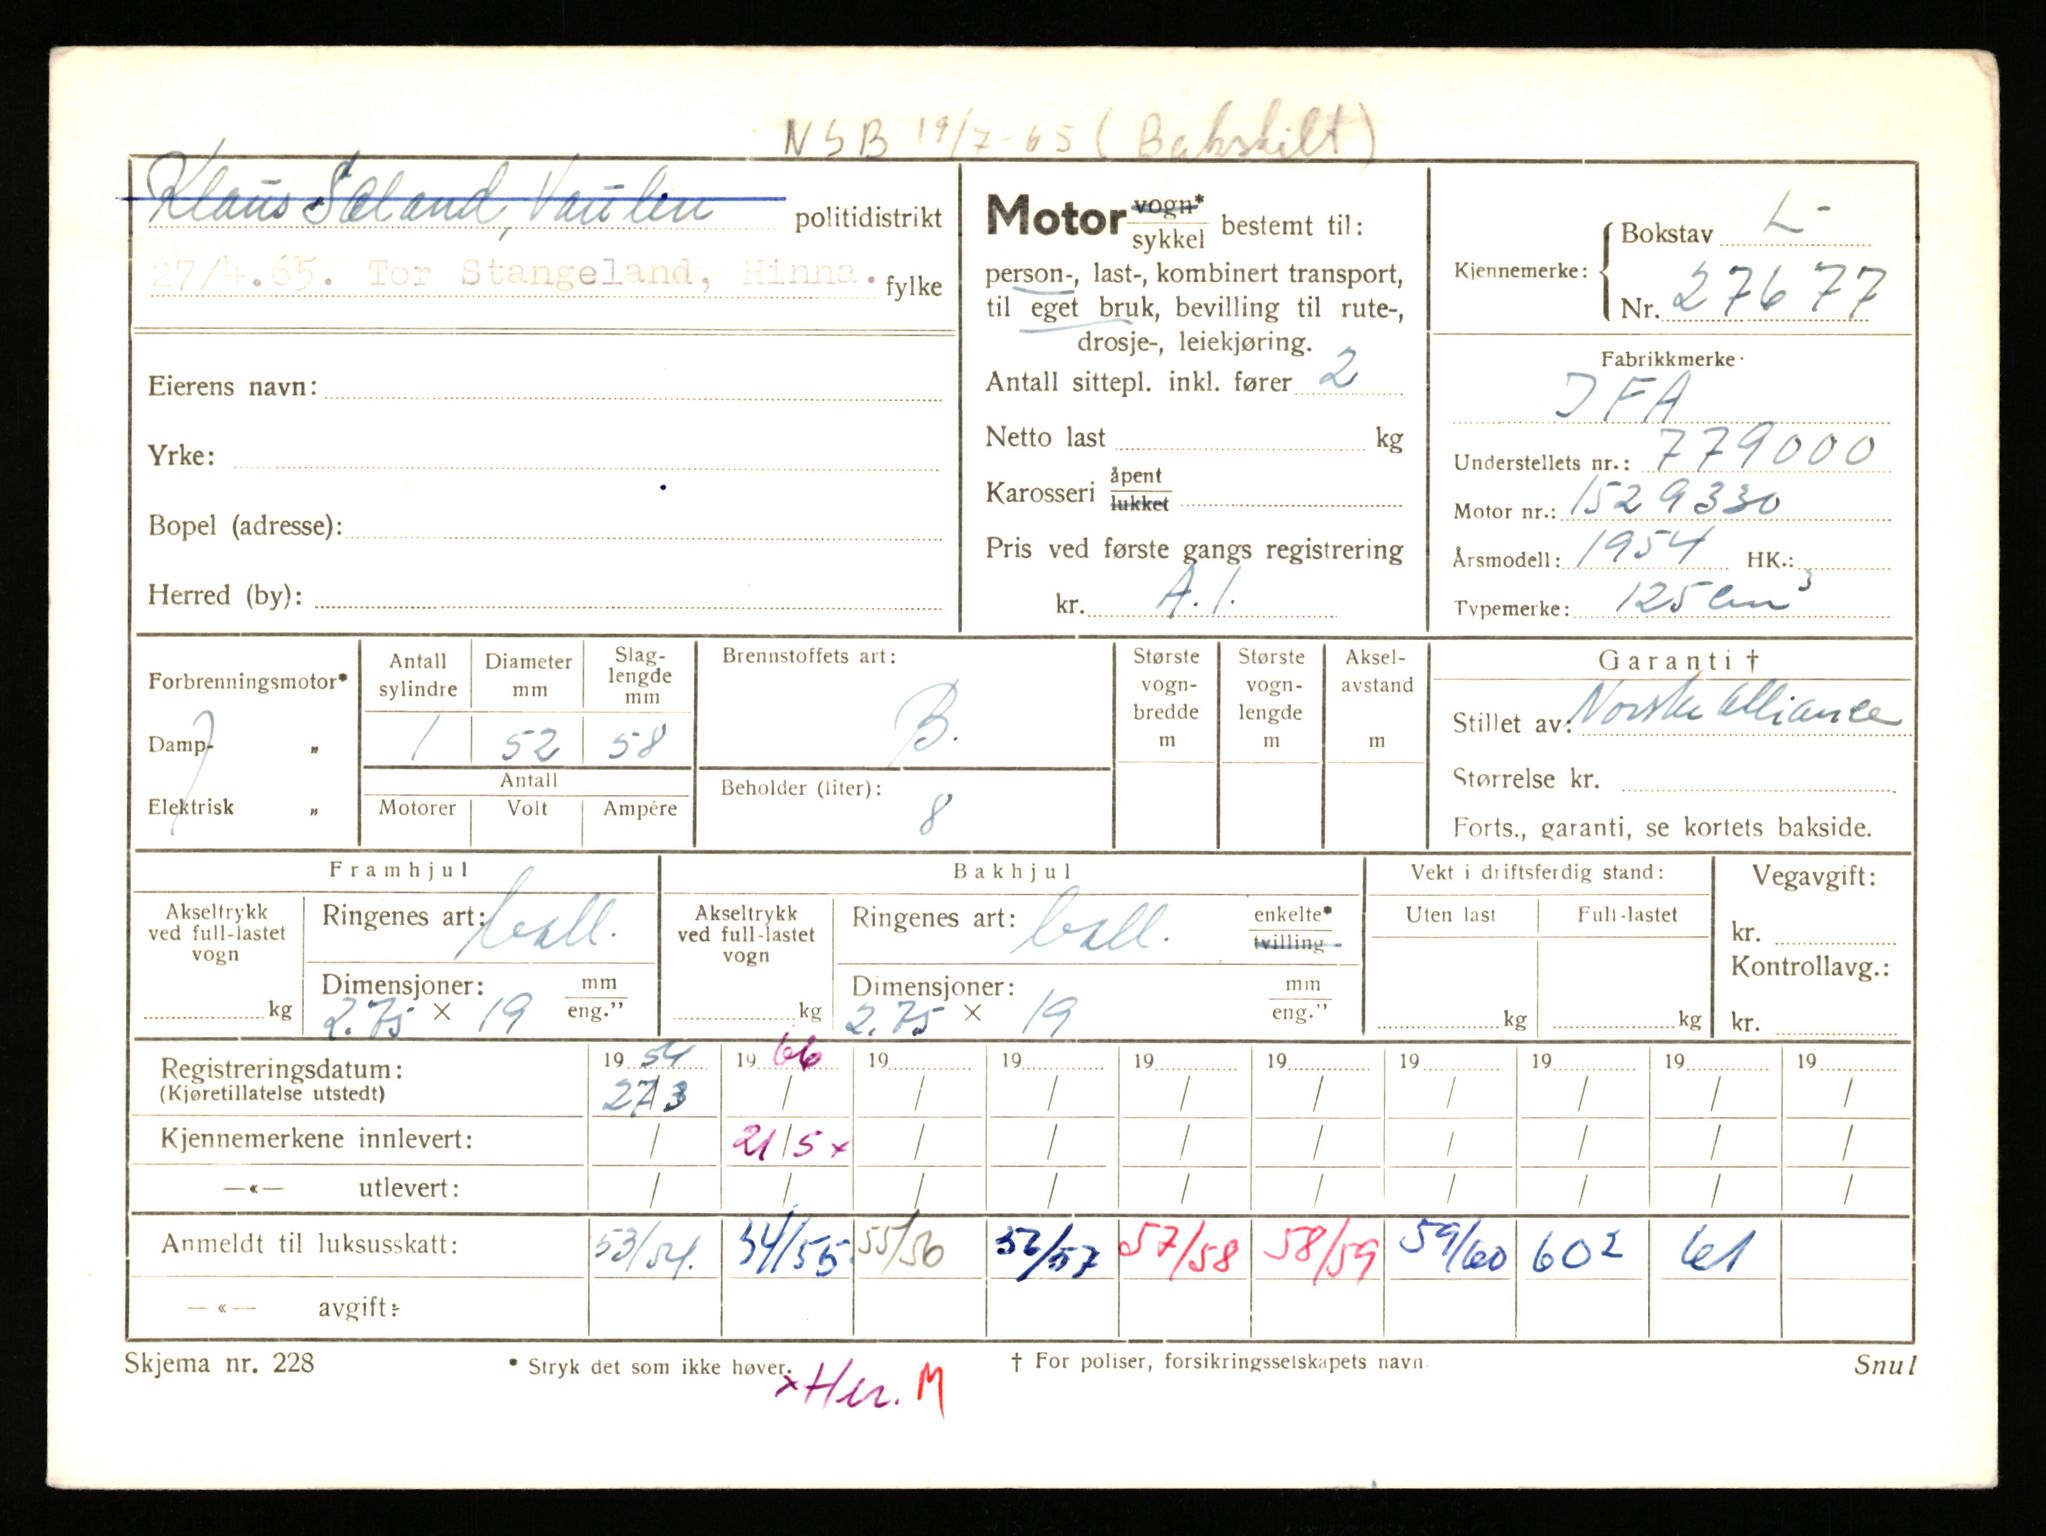 NSB 19/7-65 (Bakskilt)
Klaus Sæland, Vaulen politidistrikt
27/4.65. Tor Stangeland, Hinna. fylke
Eierens navn:
Yrke:
Bopel (adresse):
Herred (by):
Motor vogn* sykkel bestemt til:
person-, last-, kombinert transport,
til eget bruk, bevilling til rute-,
drosje-, leiekjøring.
Antall sittepl. inkl. fører 2
Netto last kg
Karosseri åpent lukket
Pris ved første gangs registrering
kr. A.1.
Kjennemerke: Bokstav L-
Nr. 27677
Fabrikkmerke
IFA
Understellets nr.: 779000
Motor nr.: 1529330
Årsmodell: 1954 HK.:
Typemerke: 125 cm³
Forbrenningsmotor*
Damp- „
Elektrisk „
Antall sylindre Diameter mm Slag-lengde mm
1 52 58
Antall
Motorer Volt Ampére
Brennstoffets art:
B.
Beholder (liter):
8
Største vogn-bredde m
Største vogn-lengde m
Aksel-avstand m
Garanti †
Stillet av: Norske Alliance
Størrelse kr.
Forts., garanti, se kortets bakside.
Framhjul
Akseltrykk ved full-lastet vogn kg
Ringenes art: ball.
Dimensjoner: mm eng."
2.75 × 19
Bakhjul
Akseltrykk ved full-lastet vogn kg
Ringenes art: ball. enkelte* tvilling
Dimensjoner: mm eng."
2.75 × 19
Vekt i driftsferdig stand:
Uten last Full-lastet
kg kg
Vegavgift:
kr.
Kontrollavg.:
kr.
Registreringsdatum: 1954 1966 19 19 19 19 19 19 19 19
(Kjøretillatelse utstedt) 27/3 / / / / / / / / /
Kjennemerkene innlevert: / 21/5 × / / / / / / / /
—«— utlevert: / / / / / / / / / /
Anmeldt til luksusskatt: 53/54. 54/55 55/56 56/57 57/58 58/59 59/60 60² 61
—«— avgift:
Skjema nr. 228 * Stryk det som ikke høver. † For poliser, forsikringsselskapets navn. Snul
×Her. M